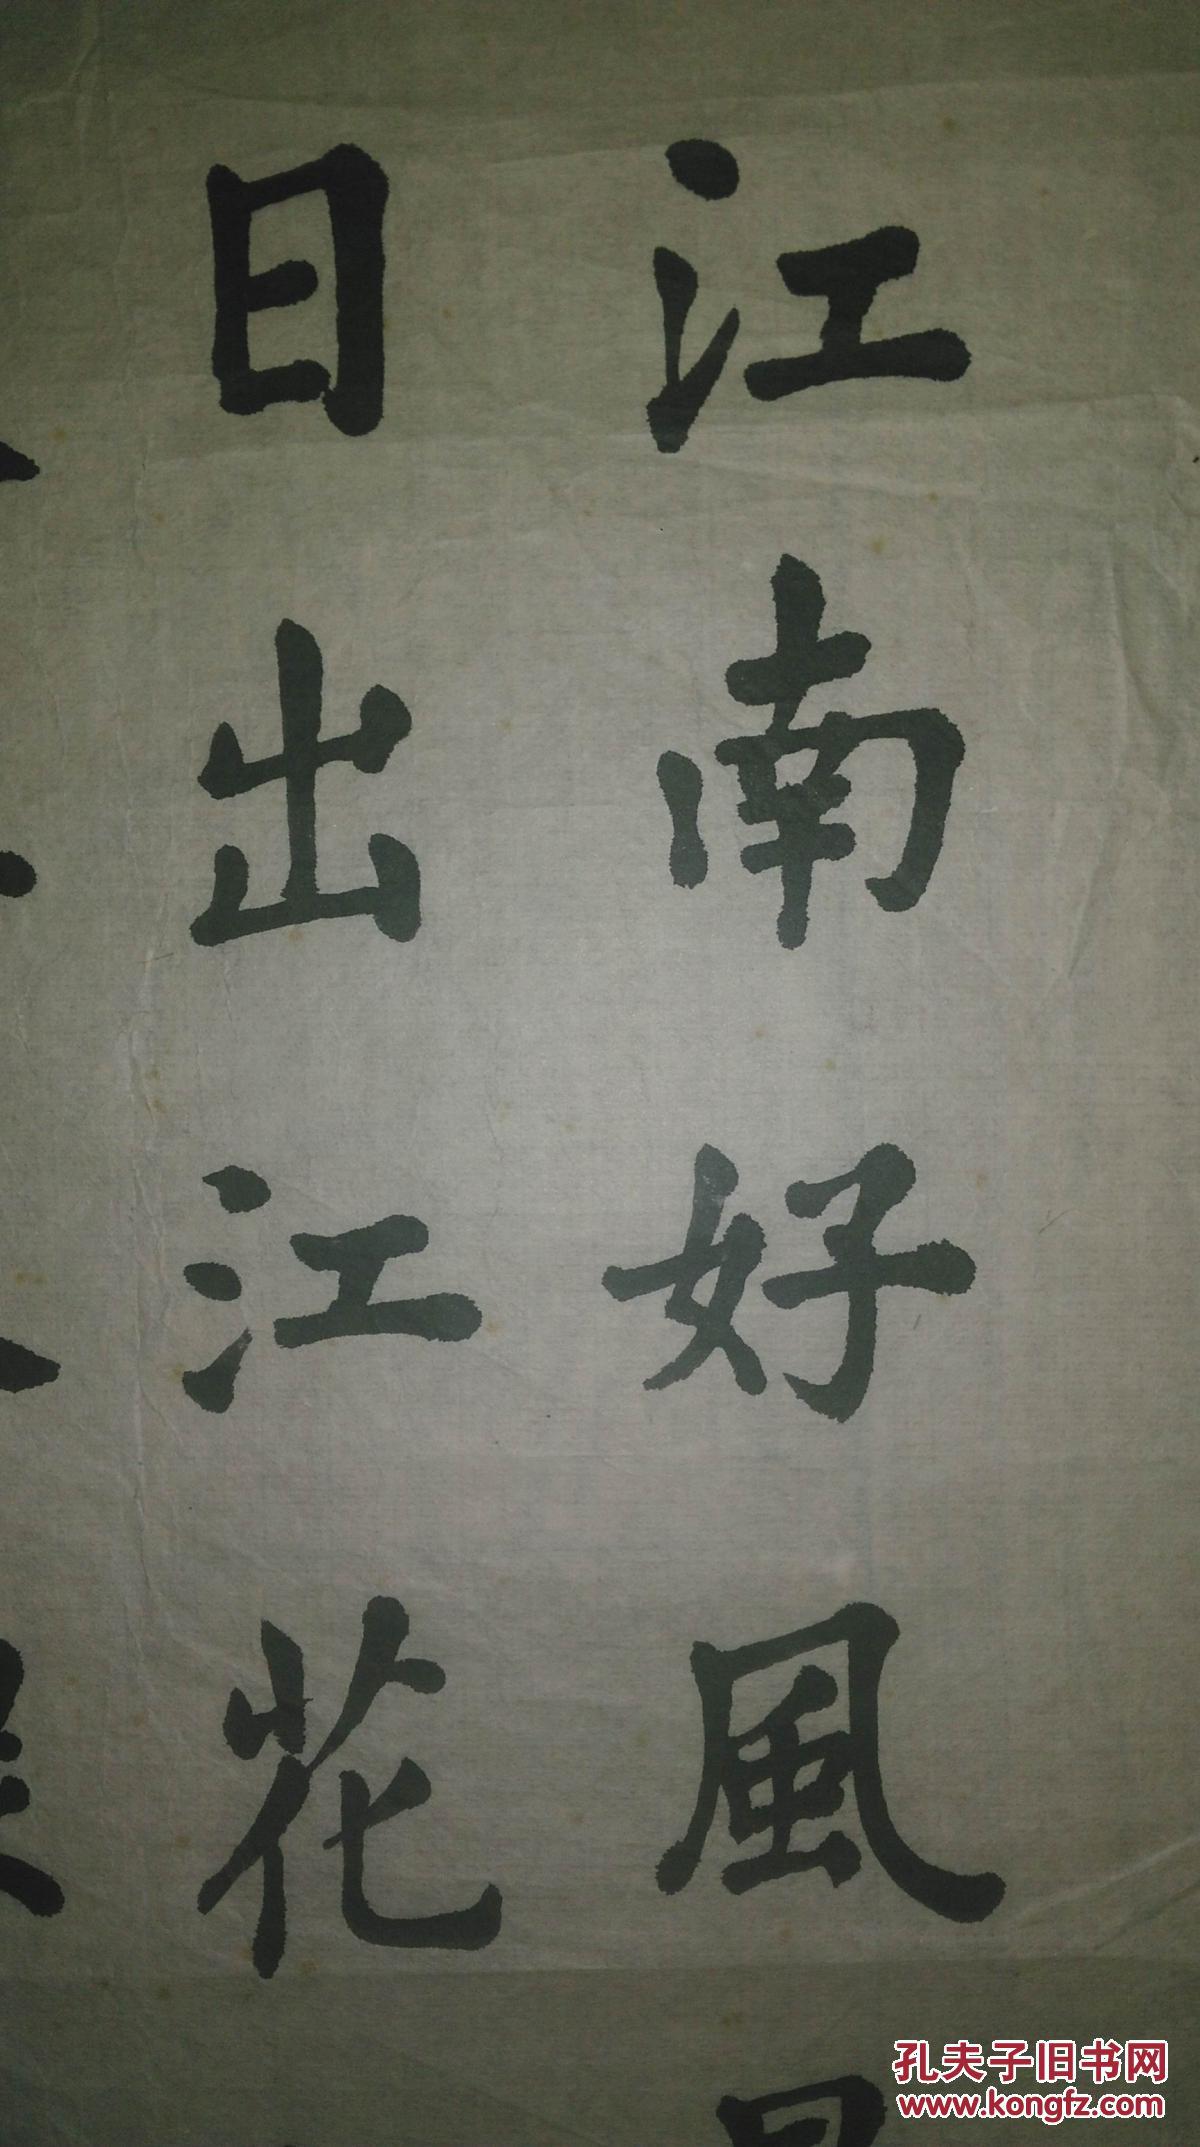 江南好風
日出江花
孔夫子旧书网
www.kongfz.com